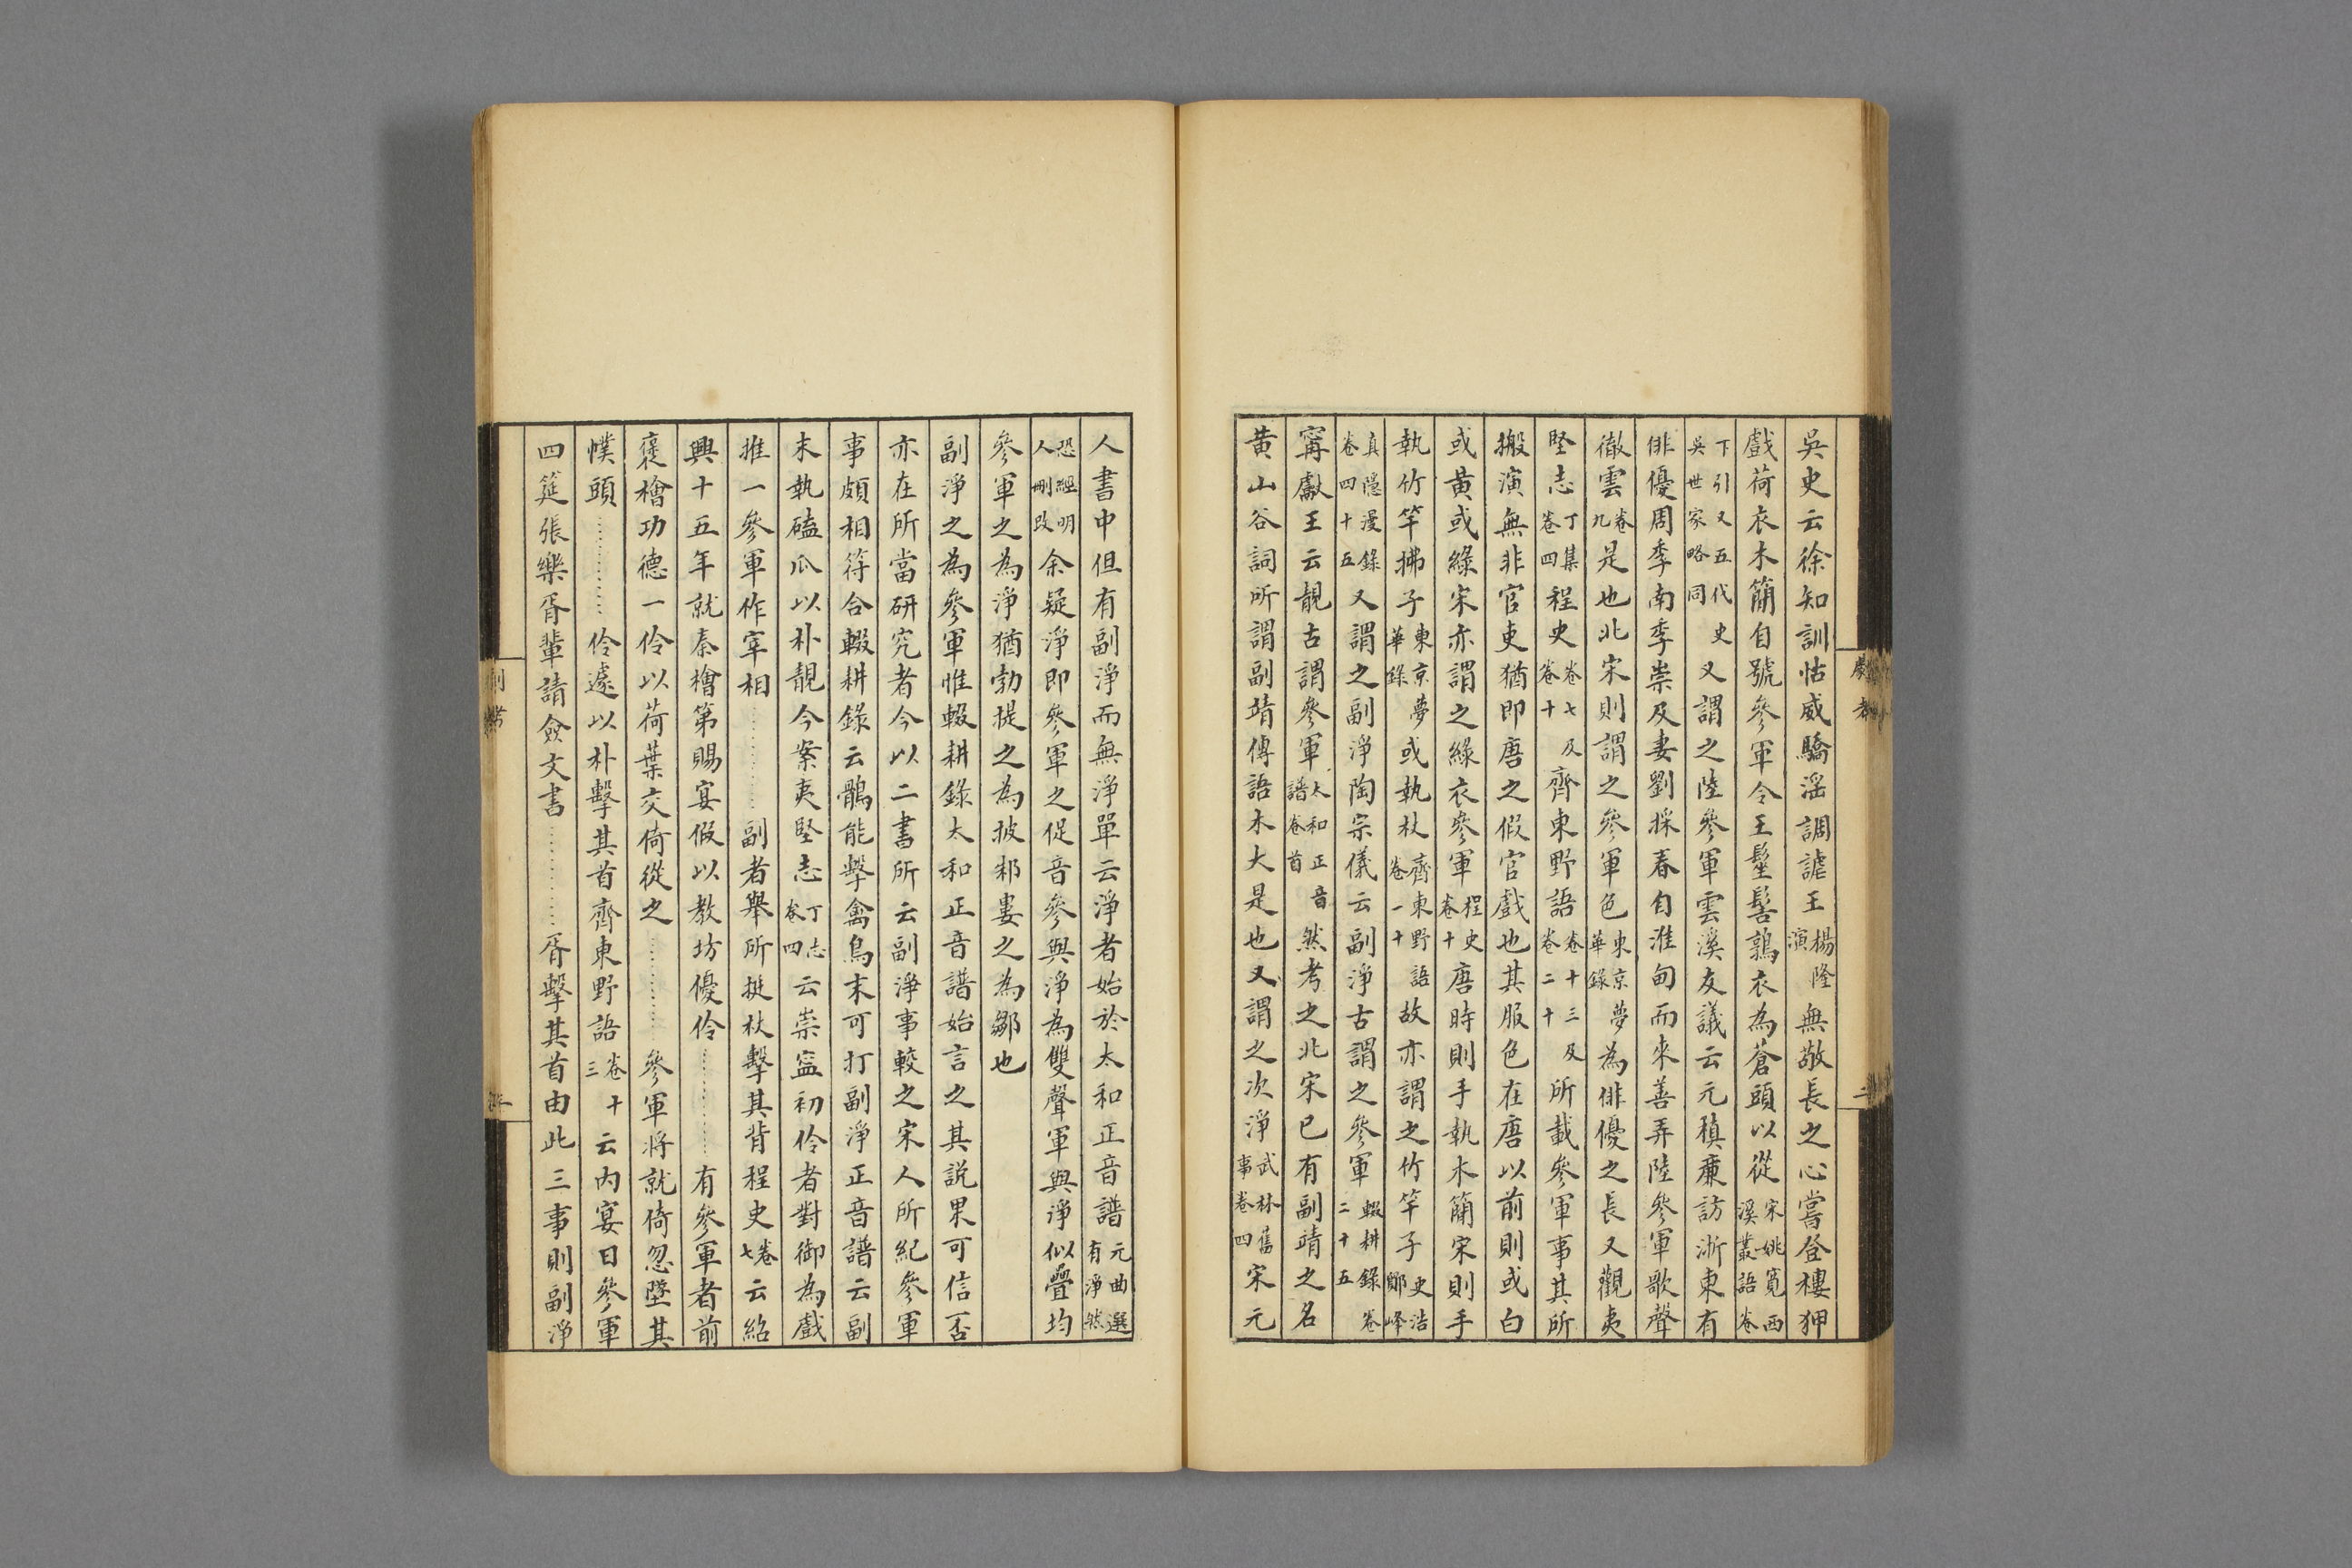 吳史云徐知訓怙威驕淫調謔王楊隆演無敬長之心嘗登樓狎
戲荷衣木簡自號參軍令王髽髻鶉衣為蒼頭以從宋姚寬西溪叢語卷
下引又五代史吳世家略同又謂之陸參軍雲溪友議云元稹廉訪浙東有
俳優周季南季崇及妻劉採春自淮甸而來善弄陸參軍歌聲
徹雲卷九是也北宋則謂之參軍色東京夢華錄為俳優之長又觀夷
堅志丁集卷四程史卷七及卷十齊東野語卷十三及卷二十所載參軍事其所
搬演無非官吏猶即唐之假官戲也其服色在唐以前則或白
或黃或綠宋亦謂之綠衣參軍程史卷十唐時則手執木簡宋則手
執竹竿拂子東京夢華錄或執杖齊東野語卷一十故亦謂之竹竿子史浩鄮峰
真隱漫錄卷四十五又謂之副淨陶宗儀云副淨古謂之參軍輟耕錄卷二十五
寗獻王云靚古謂參軍太和正音譜卷首然考之北宋已有副靖之名
黃山谷詞所謂副靖傳語木大是也又謂之次淨武林舊事卷四宋元
人書中但有副淨而無淨單云淨者始於太和正音譜元曲選有淨然
恐經明人刪改余疑淨即參軍之促音參與淨為雙聲軍與淨似疊均
參軍之為淨猶勃提之為披邾婁之為鄒也
副淨之為參軍惟輟耕錄太和正音譜始言之其說果可信否
亦在所當研究者今以二書所云副淨事較之宋人所紀參軍
事頗相符合輟耕錄云鶻能擊禽鳥末可打副淨正音譜云副
末執磕瓜以朴靚今案夷堅志丁志卷四云崇寧初伶者對御為戲
推一參軍作宰相…………副者舉所挺杖擊其背程史卷七云紹
興十五年就秦檜第賜宴假以教坊優伶…………有參軍者前
褒檜功德一伶以荷葉交倚從之…………參軍將就倚忽墜其
幞頭…………伶遽以朴擊其首齊東野語卷十三云內宴日參軍
四筵張樂胥輩請僉文書…………胥擊其首由此三事則副淨